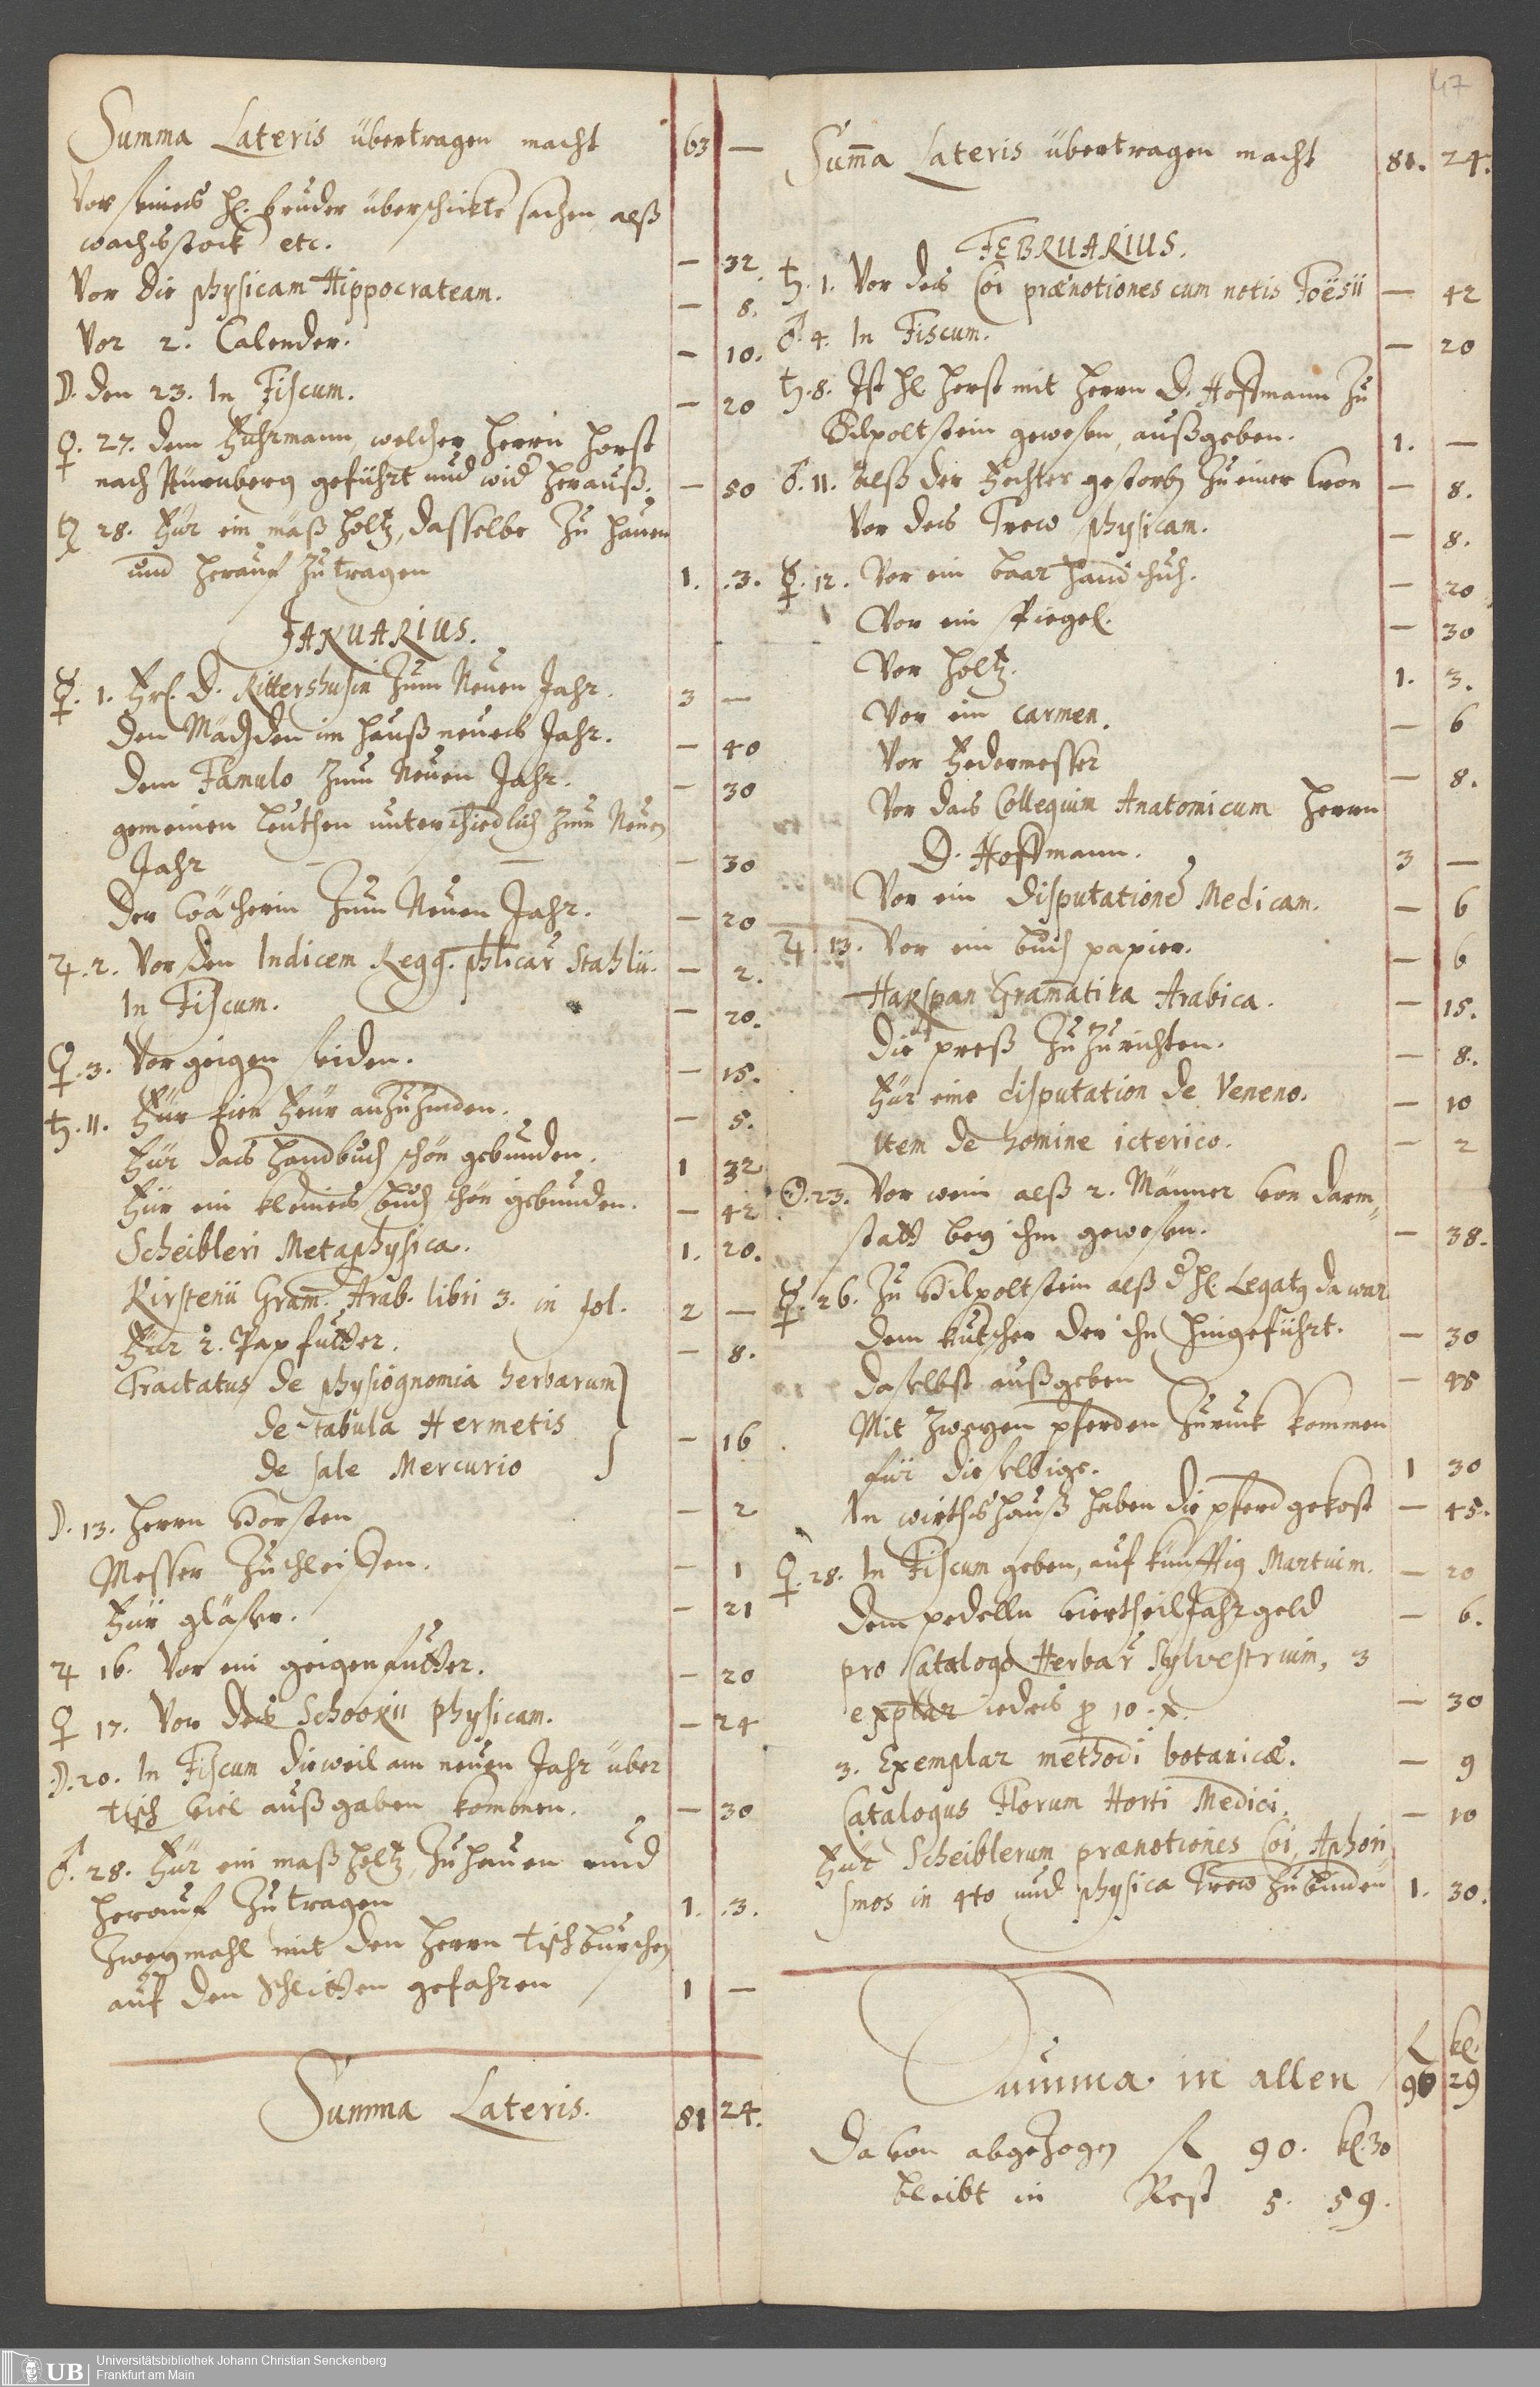 Summa Lateris übertragen macht 63 —
Vor seines H. bruder überschickte sachen, alß
wachsstock etc. — 32.
Vor die physicam Hippocrateam. — 8.
Vor 2. Calender. — 10.
☽. den 23. In Fiscum. — 20
♀. 27. dem Fuhrmann, welcher Herrn Horst
nach Nürnberg geführt und wid herauß. — 50
28. Für ein mäß Holtz, dasselbe zu hauen
und herauf zu tragen 1. .3.
JANUARIUS.
☿. 1. D. Rittershusin zum Neuen Jahr. 3 —
Den Mägden im Hauß neues Jahr. — 40
Dem Famulo zum Neuen Jahr. — 30
gemeinen Leuthen unterschiedlich zum Neuen
Jahr — — — 30
Der Wäscherin zum Neuen Jahr. — 20
♃. 2. Vor den Indicem Regg. phlicar Stahlii. — 2.
In Fiscum. — 20.
♀. 3. Vor geigen seiden. — 15.
♄. 11. Für kien Feür anzuzünden. — 5.
Für das Handbuch schön gebunden. 1 32
Für ein kleines buch schön gebunden. — 42
Scheibleri Metaphysica. 1. 20.
Kirstenii Gram. Arab. libri 3. in fol. 2 —
Für 2. futter. — 8.
Tractatus de physiognomia herbarum
de tabula Hermetis — 16
de sale Mercurio
☽. 13. Herrn Horsten — 2
Messer zuschleiffen. — 1
Für gläser. — 21
♃ 16. Vor ein geigenfutter. — 20
♀ 17. Vor des Schookii physicam. — 24
☽. 20. In Fiscum dieweil am neuen Jahr über
tisch viel außgaben kommen. — 30
♂. 28. Für ein maß holtz, zuhauen und
herauf zutragen 1. .3.
Zweymahl mit den Herrn tischburschen
auf den Schlitten gefahren 1 —
Summa Lateris. 81 24.
47
Summa Lateris übertragen macht 81. 24.
FEBRUARIUS.
♄. 1. Vor des Coi prænotiones cum notis Foësii — 42
♂ 4. In Fiscum. — 20
♄. 8. Ist H. Horst mit Herrn D. Hoffmann zu
Hilpoltstein gewesen, außgeben. 1. —
♂. 11. Alß der Fechter gestorb zu einer Cron — 8.
Vor des Trew physicam. — 8.
☿. 12. Vor ein baar handschuh. — 20
Vor ein spiegel. — 30
Vor holtz. 1. 3.
Vor ein carmen. — 6
Vor Federmesser — 8.
Vor das Collegium Anatomicum Herrn
D. Hoffmann. 3 —
Vor ein disputatione Medicam. — 6
♃. 13. Vor ein buch papier. — 6
Hakspan Gramatika Arabica. — 15.
Die preß zuzurichten. — 8.
Für eine disputation de Veneno. — 10
Item de homine icterico. — 2
☉. 23. Vor wein alß 2. Männer von Darm„
statt bey ihm gewesen. — 38.
☿. 26. Zu Hilpoltstein alß d H. Legatg da war
dem kutscher der ihn hingeführt. — 30
daselbst außgeben — 45
Mit zweyen pferden zuruck kommen
für dieselbige. 1 30
In wirthshauß haben die pferd gekost — 45.
♀. 28. In Fiscum geben, auf künfftig Martium. — 20
Dem pedelln viertheil Jahrgeld — 6.
pro Catalogo Herbar Sylvestrium, 3
explar iedes p 10. x. — 30
3. Exemplar methodi botanicæ. — 9
Catalogus Florum Horti Medici. — 10
Für Scheiblerum prænotiones Coi, Aphori„
smos in 4to und physica Trew zubinden 1. 30.
Summa in allen fl 96 kl. 29
Davon abgezogen fl 90. kl. 30
bleibt in Rest 5. 59.
UB Universitätsbibliothek Johann Christian Senckenberg
Frankfurt am Main